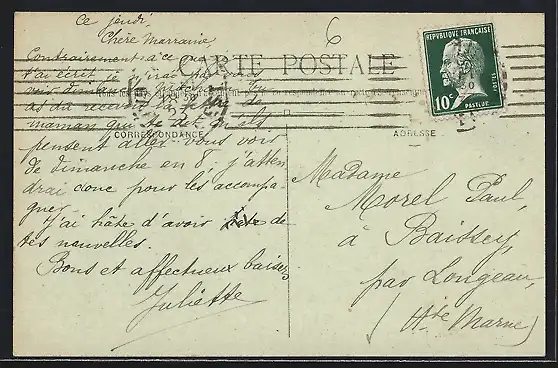 Ce jeudi
Chère Marraine,
Contrairement à ce que
t'ai écrit je n'irai pas
voir dimanche
as dû recevoir la lettre de
maman qui te dit qu'ils
pensent aller vous voir
de dimanche en 8. j'atten
drai donc pour les accompa
gner.
J'ai hâte d'avoir de
tes nouvelles.
Bons et affectueux baisers
Juliette
6
CARTE POSTALE
CORRESPONDANCE
ADRESSE
REPUBLIQUE FRANÇAISE
POSTES
10c
PASTEUR
Madame
Morel Paul,
à Baissey,
par Longeau,
(Hte Marne)